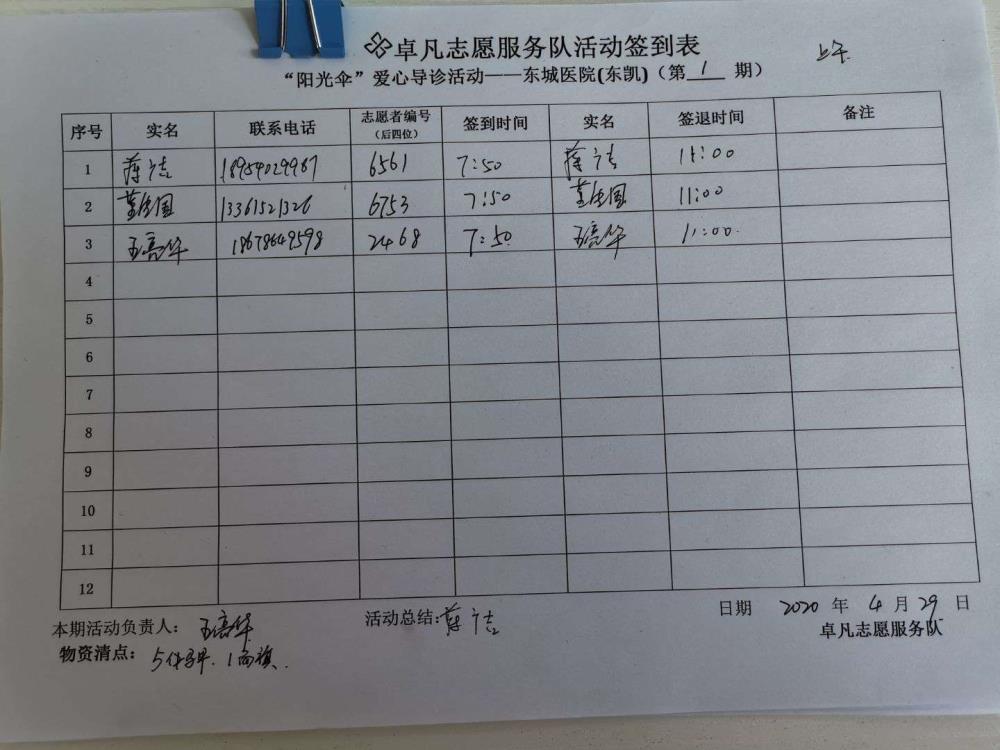 卓凡志愿服务队活动签到表
上午
“阳光伞”爱心导诊活动——东城医院(东凯)(第 1 期)
序号 实名 联系电话 志愿者编号(后四位) 签到时间 实名 签退时间 备注
1 蒋洁 18954029987 6561 7:50 蒋洁 11:00
2 13361521326 6753 7:50 11:00
3 王亮华 18678649598 2468 7:50 王亮华 11:00
4
5
6
7
8
9
10
11
12
本期活动负责人: 王亮华 活动总结: 蒋洁 日期 2020 年 4 月 29 日
卓凡志愿服务队
物资清点: 5件马甲. 1面旗.